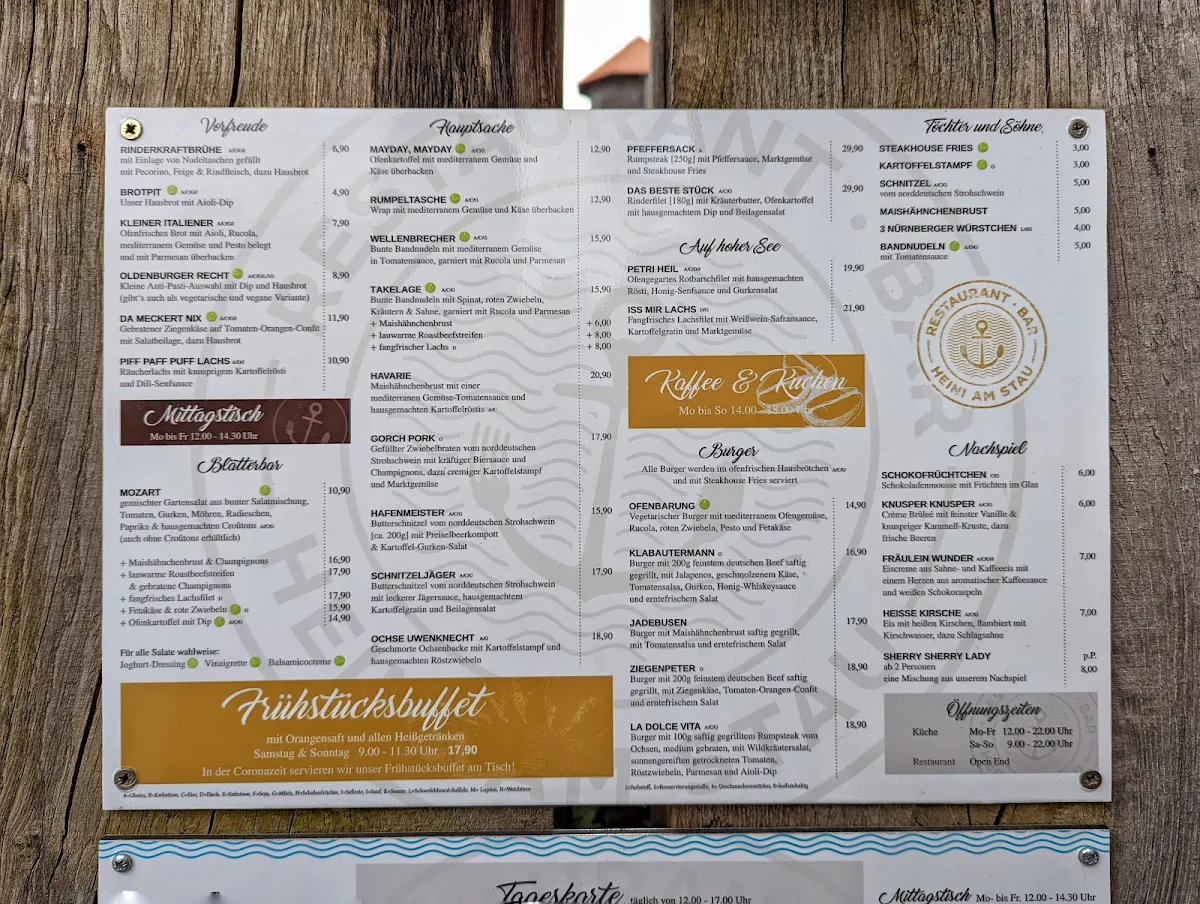 Vorfreude
RINDERKRAFTBRÜHE 6,90
mit Einlage von Nudeltaschen gefüllt
mit Pecorino, Feige & Rindfleisch, dazu Hausbrot
BROTPIT 4,90
Unser Hausbrot mit Aioli-Dip
KLEINER ITALIENER 7,90
Ofenfrisches Brot mit Aioli, Rucola,
mediterranem Gemüse und Pesto belegt
und mit Parmesan überbacken
OLDENBURGER RECHT 8,90
Kleine Anti-Pasti-Auswahl mit Dip und Hausbrot
(gibt's auch als vegetarische und vegane Variante)
DA MECKERT NIX 11,90
Gebratener Ziegenkäse auf Tomaten-Orangen-Confit
mit Salatbeilage, dazu Hausbrot
PIFF PAFF PUFF LACHS 10,90
Räucherlachs mit knusprigem Kartoffelrösti
und Dill-Senfsauce
Mittagstisch
Mo bis Fr 12.00 - 14.30 Uhr
Blätterbar
MOZART 10,90
gemischter Gartensalat aus bunter Salatmischung,
Tomaten, Gurken, Möhren, Radieschen,
Paprika & hausgemachten Croûtons A/C/G
(auch ohne Croûtons erhältlich)
+ Maishähnchenbrust & Champignons 16,90
+ lauwarme Roastbeefstreifen 17,90
& gebratene Champignons
+ fangfrisches Lachsfilet D 17,90
+ Fetakäse & rote Zwiebeln G 15,90
+ Ofenkartoffel mit Dip A/C/G 14,90
Für alle Salate wahlweise:
Joghurt-Dressing Vinaigrette Balsamicocreme
Hauptsache
MAYDAY, MAYDAY A/C/G 12,90
Ofenkartoffel mit mediterranem Gemüse und
Käse überbacken
RUMPELTASCHE A/C/G 12,90
Wrap mit mediterranem Gemüse und Käse überbacken
WELLENBRECHER A/C/G 15,90
Bunte Bandnudeln mit mediterranem Gemüse
in Tomatensauce, garniert mit Rucola und Parmesan
TAKELAGE A/C/G 15,90
Bunte Bandnudeln mit Spinat, roten Zwiebeln,
Kräutern & Sahne, garniert mit Rucola und Parmesan
+ Maishähnchenbrust + 6,00
+ lauwarme Roastbeefstreifen + 8,00
+ fangfrischer Lachs D + 8,00
HAVARIE 20,90
Maishähnchenbrust mit einer
mediterranen Gemüse-Tomatensauce und
hausgemachten Kartoffelröstis A/C
GORCH PORK G 17,90
Gefüllter Zwiebelbraten vom norddeutschen
Strohschwein mit kräftiger Biersauce und
Champignons, dazu cremiger Kartoffelstampf
und Marktgemüse
HAFENMEISTER A/C/G 15,90
Butterschnitzel vom norddeutschen Strohschwein
[ca. 200g] mit Preiselbeerkompott
& Kartoffel-Gurken-Salat
SCHNITZELJÄGER A/C/G 17,90
Butterschnitzel vom norddeutschen Strohschwein
mit leckerer Jägersauce, hausgemachtem
Kartoffelgratin und Beilagensalat
OCHSE UWENKNECHT A/G 18,90
Geschmorte Ochsenbacke mit Kartoffelstampf und
hausgemachten Röstzwiebeln
Frühstücksbuffet
mit Orangensaft und allen Heißgetränken
Samstag & Sonntag 9.00 - 11.30 Uhr 17,90
In der Coronazeit servieren wir unser Frühstücksbuffet am Tisch!
PFEFFERSACK A 29,90
Rumpsteak [250g] mit Pfeffersauce, Marktgemüse
und Steakhouse Fries
DAS BESTE STÜCK A/C/G 29,90
Rinderfilet [180g] mit Kräuterbutter, Ofenkartoffel
mit hausgemachtem Dip und Beilagensalat
Auf hoher See
PETRI HEIL 19,90
Ofengegartes Rotbarschfilet mit hausgemachten
Rösti, Honig-Senfsauce und Gurkensalat
ISS MIR LACHS D/G 21,90
Fangfrisches Lachsfilet mit Weißwein-Safransauce,
Kartoffelgratin und Marktgemüse
Kaffee & Kuchen
Mo bis So 14.00 - 18.00 Uhr
Burger
Alle Burger werden im ofenfrischen Hausbrötchen A/C/G
und mit Steakhouse Fries serviert
OFENBARUNG 14,90
Vegetarischer Burger mit mediterranem Ofengemüse,
Rucola, roten Zwiebeln, Pesto und Fetakäse
KLABAUTERMANN G 16,90
Burger mit 200g feinstem deutschen Beef saftig
gegrillt, mit Jalapenos, geschmolzenem Käse,
Tomatensalsa, Gurken, Honig-Whiskeysauce
und erntefrischem Salat
JADEBUSEN 17,90
Burger mit Maishähnchenbrust saftig gegrillt,
mit Tomatensalsa und erntefrischem Salat
ZIEGENPETER G 18,90
Burger mit 200g feinstem deutschen Beef saftig
gegrillt, mit Ziegenkäse, Tomaten-Orangen-Confit
und erntefrischem Salat
LA DOLCE VITA A/C/G 18,90
Burger mit 100g saftig gegrilltem Rumpsteak vom
Ochsen, medium gebraten, mit Wildkräutersalat,
sonnengereiften getrockneten Tomaten,
Röstzwiebeln, Parmesan und Aioli-Dip
Töchter und Söhne
STEAKHOUSE FRIES 3,00
KARTOFFELSTAMPF G 3,00
SCHNITZEL A/C/G 5,00
vom norddeutschen Strohschwein
MAISHÄHNCHENBRUST 5,00
3 NÜRNBERGER WÜRSTCHEN 4,00
BANDNUDELN 5,00
mit Tomatensauce
RESTAURANT · BAR
HEINI AM STAU
Nachspiel
SCHOKOFRÜCHTCHEN C/G 6,00
Schokoladenmousse mit Früchten im Glas
KNUSPER KNUSPER A/C/G 6,00
Crème Brûleé mit feinster Vanille &
knuspriger Karamell-Kruste, dazu
frische Beeren
FRÄULEIN WUNDER 7,00
Eiscreme aus Sahne- und Kaffeeeis mit
einem Herzen aus aromatischer Kaffeesauce
und weißen Schokoraspeln
HEISSE KIRSCHE A/C/G 7,00
Eis mit heißen Kirschen, flambiert mit
Kirschwasser, dazu Schlagsahne
SHERRY SHERRY LADY p.P.
ab 2 Personen 8,00
eine Mischung aus unserem Nachspiel
Öffnungszeiten
Küche Mo-Fr 12.00 - 22.00 Uhr
Sa-So 9.00 - 22.00 Uhr
Restaurant Open End
Tageskarte täglich von 12.00 - 17.00 Uhr
Mittagstisch Mo- bis Fr. 12.00 - 14.30 Uhr